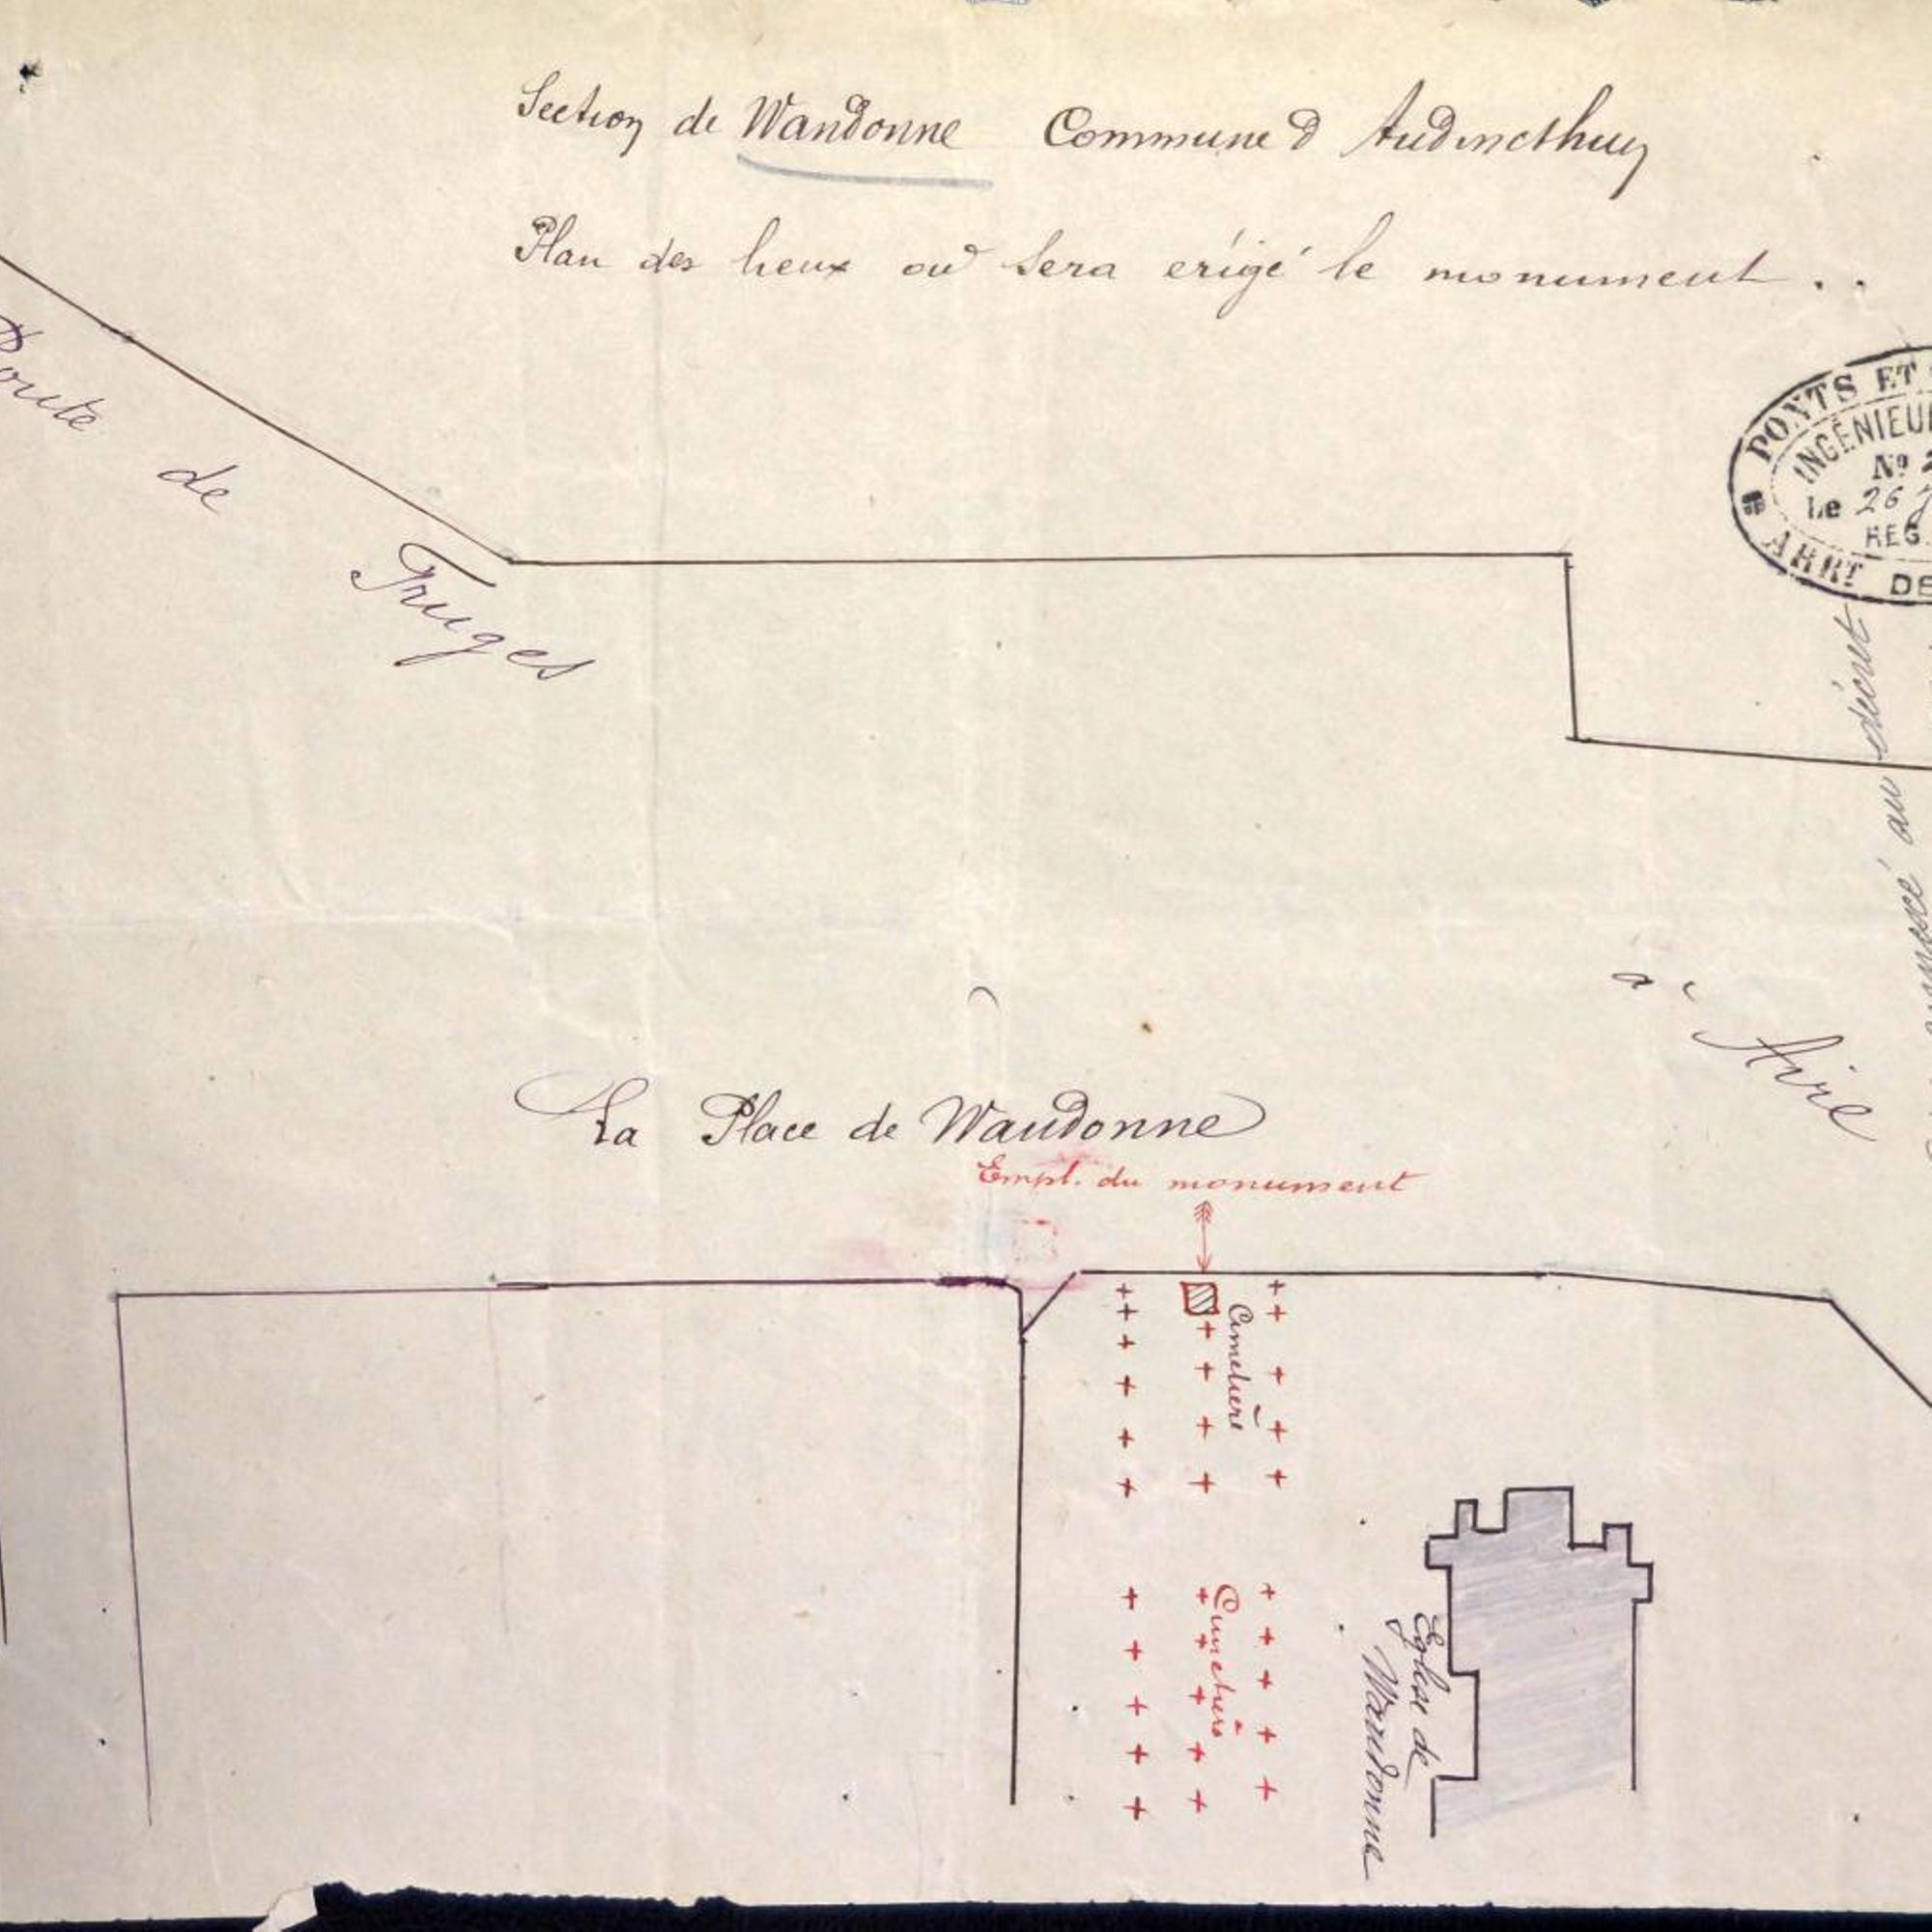 Section de Wandonne Commune d Audincthuy
Plan des lieux où sera érigé le monument..
Route de Fruges
PONTS ET
INGÉNIEU
Nº 2
Le 26
REG.
ARRT DE
décret
annexé au
à Aire
La Place de Wandonne
Empl. du monument
Cimetière
Cimetière
Eglise de
Wandonne